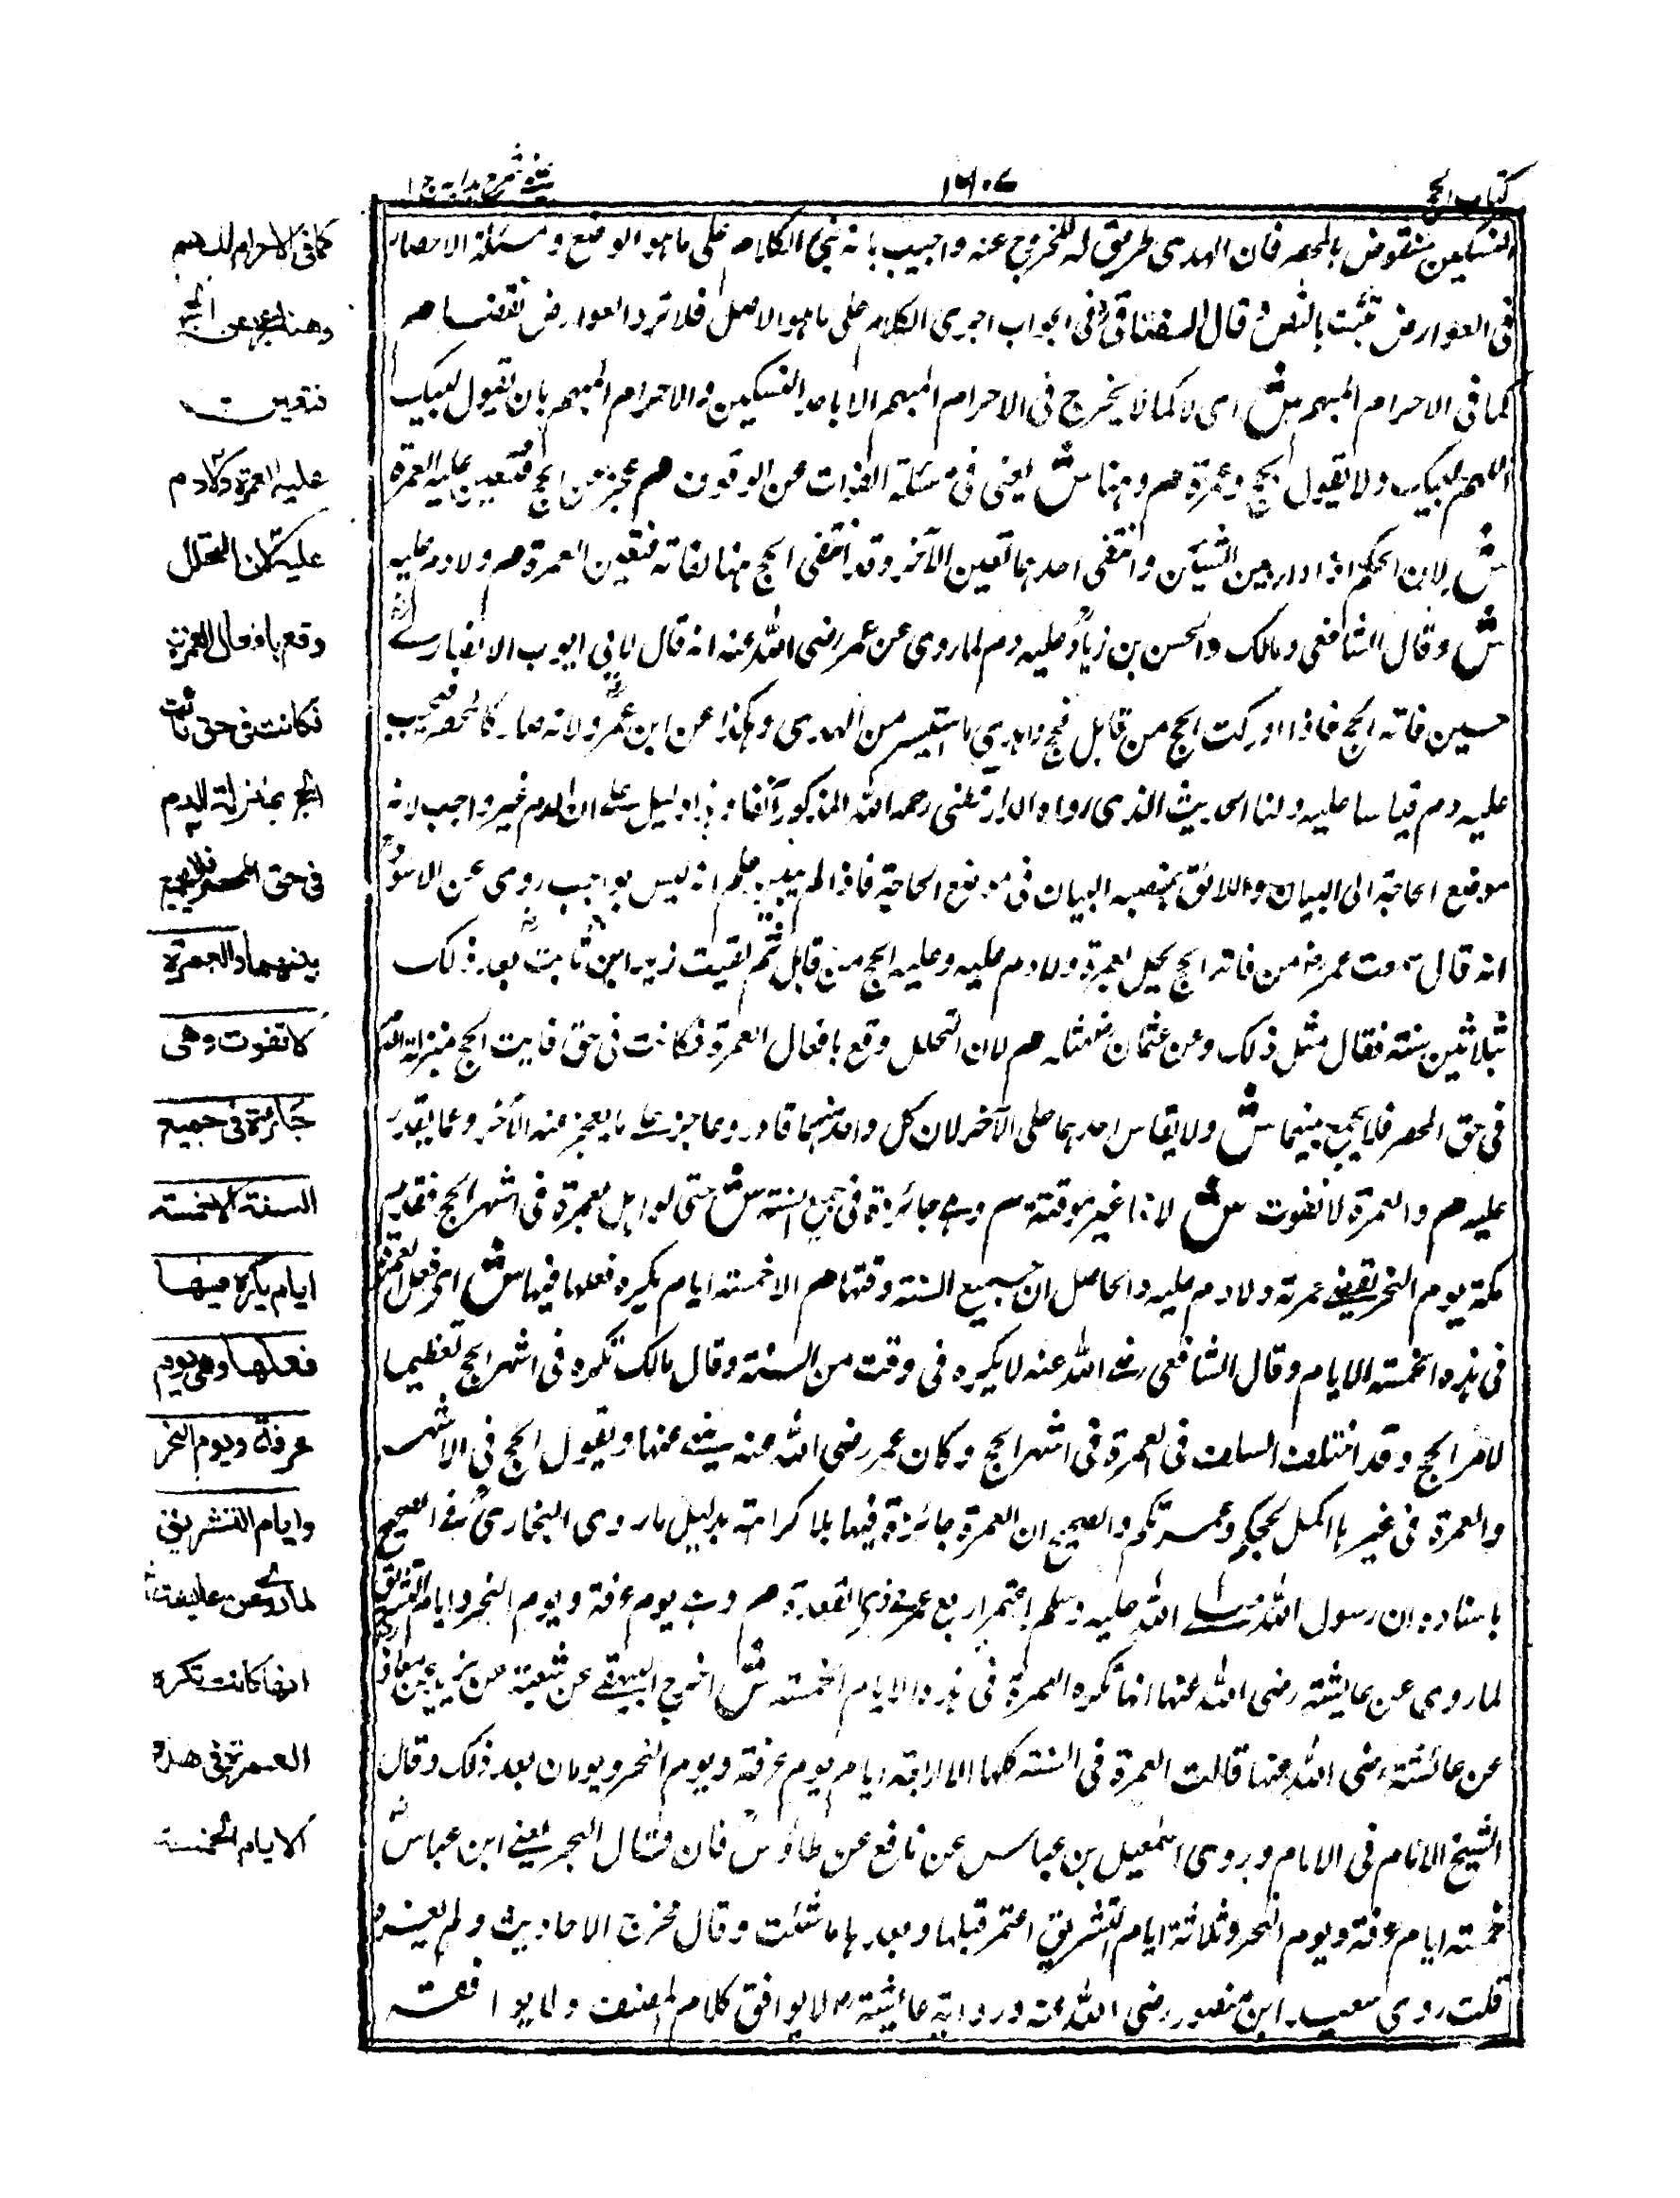 كتاب الحج
١٦٠٧
عينى شرح هداية ج ١
النسكين منقوض بالمحصر فان الهدى طريق له للخروج عنه واجيب بانه بنى الكلام على ما هو الوضع ومسئلة الاحصار
فى العوارض تثبت بالنص قال السغناقى فى الجواب اجرى الكلام على ما هو الاصل فلا ترد العوارض نقضا هم
كما فى الاحرام المبهم ش اى لا كما لا يخرج فى الاحرام المبهم الا باحد النسكين والاحرام المبهم بان تقول لبيك
اللهم لبيك ولا تقول بحج وعمرة هم وهنا ش يعنى فى مسئلة الفوات عن الوقوف هم عجز عن الحج فتعين عليه العمرة
ش لان الحكم اذا دار بين الشيئين وانتفى احدهما تعين الآخر وقد انتفى الحج هنا لفاته فتعين العمرة هم ولا دم عليه
ش وقال الشافعى ومالك والحسن بن زياد عليه دم لما روى عن عمر رضى الله عنه انه قال لابى ايوب الانصارى
حين فاته الحج فاذا ادركت الحج من قابل فحج واهدى ما استيسر من الهدى وهكذا عن ابن عمر ولانه صار كالمحصر فيجب
عليه دم قياسا عليه ولنا الحديث الذى رواه الدارقطنى رحمه الله المذكور آنفا وهذا دليل على ان الدم غير واجب لانه
موضع الحاجة الى البيان واللائق بمنصبه البيان فى موضع الحاجة فاذا لم يبين علم انه ليس بواجب روى عن الاسود
انه قال سمعت عمر من فاته الحج يحل بعمرة ولا دم عليه وعليه الحج من قابل ثم لقيت زيد ابن ثابت بعد ذلك
بثلاثين سنة فقال مثل ذلك وعن عثمان مثله هم لان التحلل وقع بافعال العمرة فكانت فى حق فايت الحج بمنزلة الدم
فى حق المحصر فلا يجمع بينهما ش ولا يقاس احدهما على الآخر لان كل واحد منهما قادر وعاجز على ما يعجز عنه الآخر وعما يقدر
عليه هم والعمرة لا تفوت ش لانها غير موقتة هم وهى جائزة فى جميع السنة ش حتى لو اهل بعمرة فى اشهر الحج فقدم
مكة يوم النحر يقضى عمرته ولا دم عليه والحاصل ان جميع السنة وقتها هم الا خمسة ايام يكره فعلها فيها ش اى فعل العمرة
فى هذه الخمسة الايام وقال الشافعى رضى الله عنه لا يكره فى وقت من السنة وقال مالك تكره فى اشهر الحج تعظيما
لامر الحج وقد اختلف السلف فى العمرة فى اشهر الحج وكان عمر رضى الله عنه ينهى عنها ويقول الحج فى الاشهر
والعمرة فى غيرها اكمل لحجكم وعمرتكم والصحيح ان العمرة جائزة فيها بلا كراهة بدليل ما روى البخارى فى الصحيح
باسناده ان رسول الله صلى الله عليه وسلم اعتمر اربع عمر فى ذى القعدة هم وهى يوم عرفة ويوم النحر وايام التشريق
لما روى عن عايشة رضى الله عنها انها تكره العمرة فى هذه الايام الخمسة ش اخرج البيهقى عن شعبة عن يزيد عن معاذة
عن عائشة رضى الله عنها قالت العمرة فى السنة كلها الا اربعة ايام يوم عرفة ويوم النحر ويومان بعد ذلك وقال
الشيخ الامام فى الامام وروى اسمعيل بن عياش عن نافع عن طاؤس فان قال البحر يعنى ابن عباس
خمسة ايام عرفة ويوم النحر وثلاثة ايام التشريق اعتمر قبلها وبعدها ما شئت وقال مخرج الاحاديث ولم يعزه
قلت روى سعيد ابن منصور رضى الله عنه ورواية عايشة لا يوافق كلام المصنف ولا يوافقه
كما فى الاحرام المبهم
وهنا عجز عن الحج
فتعين
عليه العمرة ولا دم
عليه لان التحلل
وقع بافعال العمرة
فكانت فى حق فائت
الحج بمنزلة الدم
فى حق المحصر فلا يجمع
بينهما والعمرة
لا تفوت وهى
جائزة فى جميع
السنة الا خمسة
ايام يكره فيها
فعلها وهى يوم
عرفة ويوم النحر
وايام التشريق
لما روى عن عايشة
انها كانت تكره
العمرة فى هذه
الايام الخمسة